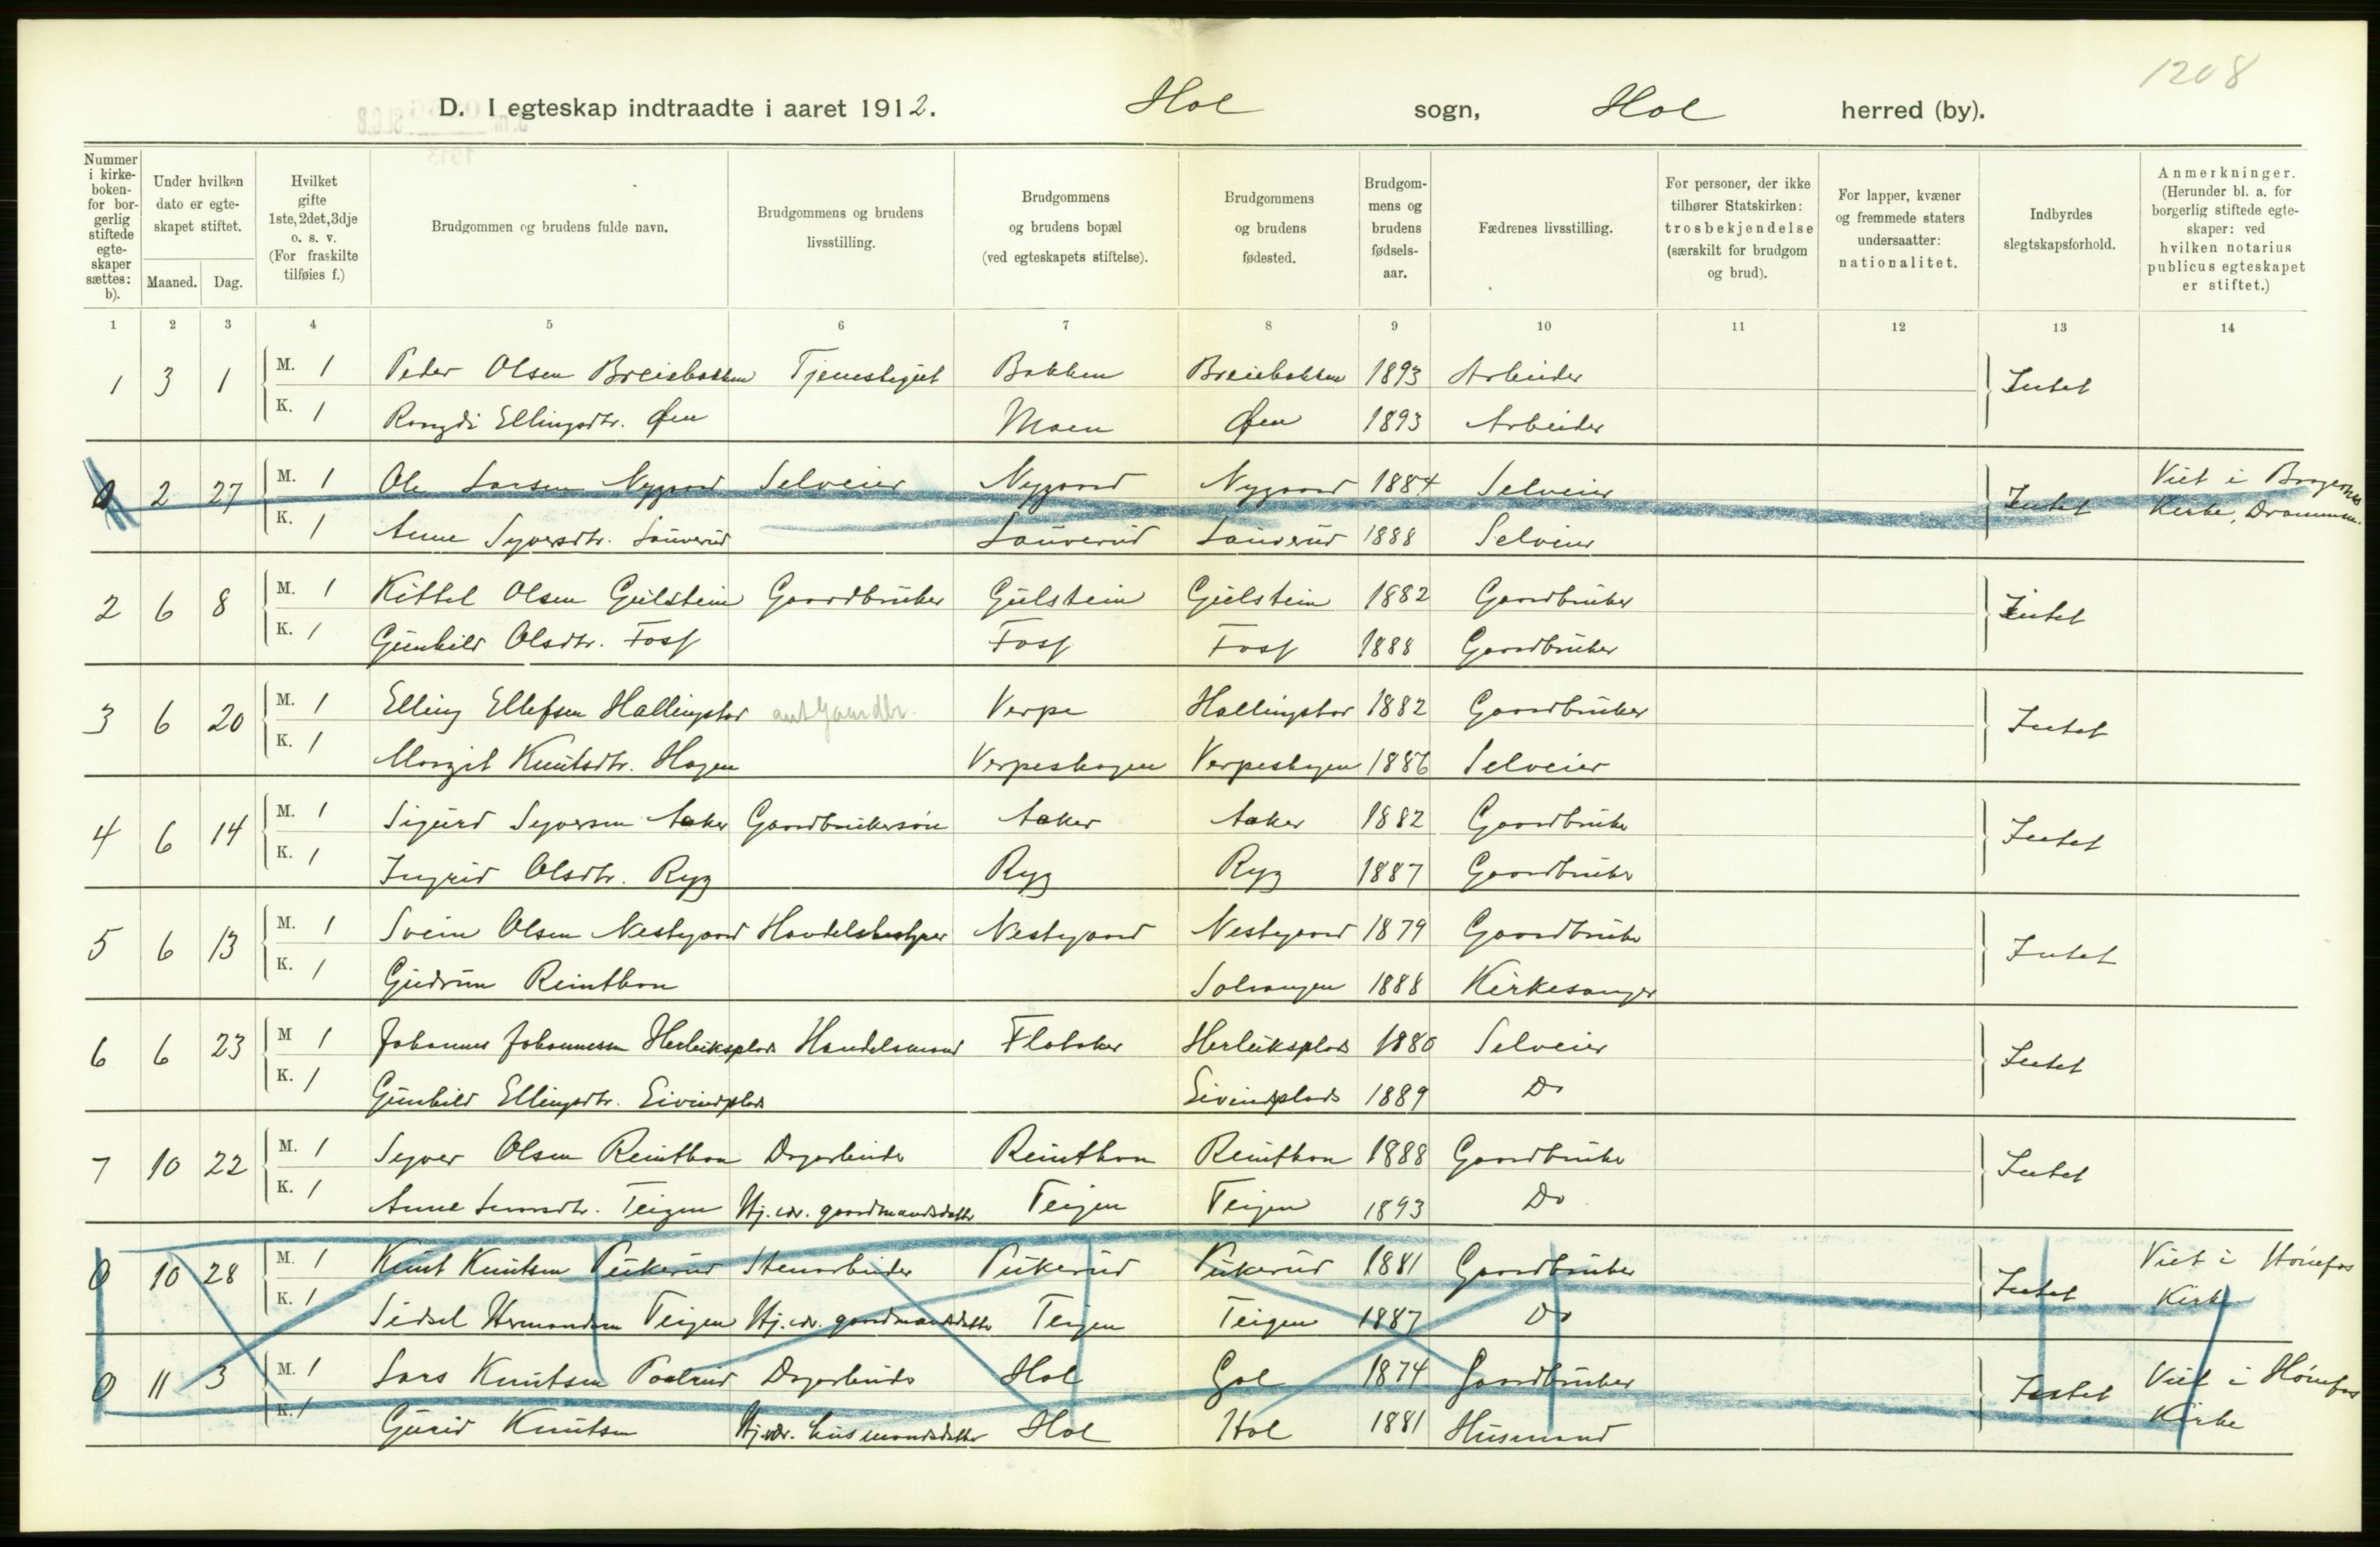 1208
D. I egteskap indtraadte i aaret 1912. Hol sogn, Hol herred (by).
Nummer i kirke-boken- for bor-gerlig stiftede egte-skaper sættes: b).
Under hvilken dato er egte-skapet stiftet.
Maaned. Dag.
Hvilket gifte 1ste, 2det, 3dje o. s. v. (For fraskilte tilføies f.)
Brudgommen og brudens fulde navn.
Brudgommens og brudens livsstilling.
Brudgommens og brudens bopæl (ved egteskapets stiftelse).
Brudgommens og brudens fødested.
Brudgom-mens og brudens fødsels-aar.
Fædrenes livsstilling.
For personer, der ikke tilhører Statskirken: trosbekjendelse (særskilt for brudgom og brud).
For lapper, kvæner og fremmede staters undersaatter: nationalitet.
Indbyrdes slegtskapsforhold.
Anmerkninger. (Herunder bl. a. for borgerlig stiftede egte-skaper: ved hvilken notarius publicus egteskapet er stiftet.)
1 2 3 4 5 6 7 8 9 10 11 12 13 14
1 3 1 M. 1 Peder Olsen Breiebakken Tjenestegut Bakken Breiebakken 1893 Arbeider Intet
K. 1 Rangdi Ellingsdtr. Øen Moen Øen 1893 Arbeider
0 2 27 M. 1 Ole Larsen Nygaard Selveier Nygaard Nygaard 1884 Selveier Intet Viet i Bragernes
K. 1 Anne Syversdtr. Sauverud Sauverud Sauverud 1888 Selveier Kirke, Drammen.
2 6 8 M. 1 Kittel Olsen Gulstein Gaardbruker Gulstein Gulstein 1882 Gaardbruker Intet
K. 1 Gunhild Olsdtr. Foss Foss Foss 1888 Gaardbruker
3 6 20 M. 1 Elling Ellefsen Hallingstad ant Gaardbr. Verpe Hallingstad 1882 Gaardbruker Intet
K. 1 Margit Knutsdtr. Hagen Verpeshagen Verpeshagen 1886 Selveier
4 6 14 M. 1 Sigurd Syversen Aaker Gaardbrukersøn Aaker Aaker 1882 Gaardbruker Intet
K. 1 Ingrid Olsdtr. Ryg Ryg Ryg 1887 Gaardbruker
5 6 13 M. 1 Svein Olsen Nestegaard Handelsbestyrer Nestegaard Nestegaard 1879 Gaardbruker Intet
K. 1 Gudrun Reinthon Solvangen 1888 Kirkesanger
6 6 23 M 1 Johannes Johannessen Herleiksplads Handelsmand Flataker Herleiksplads 1880 Selveier Intet
K. 1 Gunhild Ellingsdtr. Eivindplads Eivindsplads 1889 Do
7 10 22 M. 1 Syver Olsen Reinthon Dagarbeider Reinthon Reinthon 1888 Gaardbruker Intet
K. 1 Anne Larsdtr. Teigen Hj.vær. gaardmandsdatter Teigen Teigen 1893 Do
0 10 28 M. 1 Knut Knutsen Pukerud Stenarbeider Pukerud Pukerud 1881 Gaardbruker Intet Viet i Hønefos
K. 1 Sidsel Hermansen Teigen Hj.vær. gaardmandsdatter Teigen Teigen 1887 Do Kirke
0 11 3 M. 1 Lars Knutsen Paalrud Dagarbeider Hol Gol 1874 Gaardbruker Intet Viet i Hønefos
K. 1 Gurid Knutsen Hj.vær. husmandsdatter Hol Hol 1881 Husmand Kirke